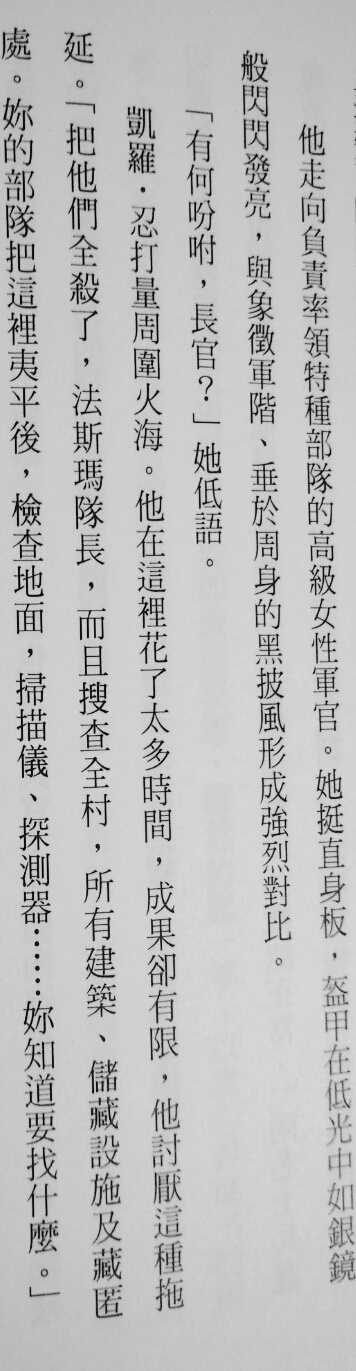 他走向負責率領特種部隊的高級女性軍官。她挺直身板，盔甲在低光中如銀鏡
般閃閃發亮，與象徵軍階、垂於周身的黑披風形成強烈對比。
「有何吩咐，長官？」她低語。
凱羅．忍打量周圍火海。他在這裡花了太多時間，成果卻有限，他討厭這種拖
延。「把他們全殺了，法斯瑪隊長，而且搜查全村，所有建築、儲藏設施及藏匿
處。妳的部隊把這裡夷平後，檢查地面，掃描儀、探測器……妳知道要找什麼。」